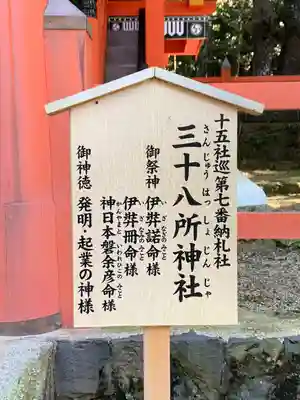 十五社巡第七番納札社
さんじゅうはっしょじんじゃ
三十八所神社
御祭神
いざなぎのみこと
伊弉諾命様
いざなみのみこと
伊弉冊命様
かんやまといわれひこのみこと
神日本磐余彦命様
御神徳 発明・起業の神様